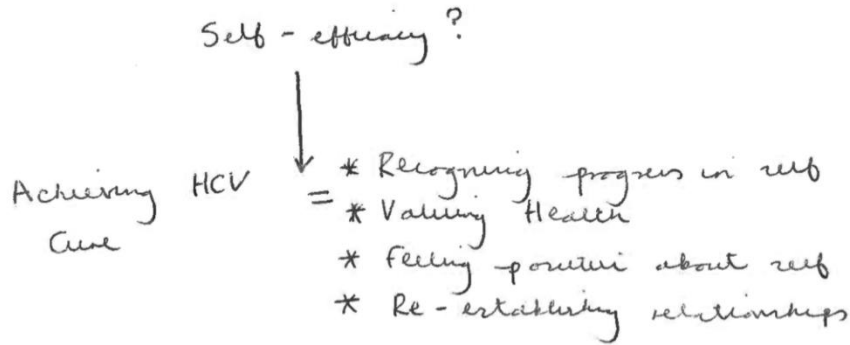 Self-efficacy?
Achieving HCV Cure = * Recognising progress in self
* Valuing Health
* Feeling positive about self
* Re-establishing relationships